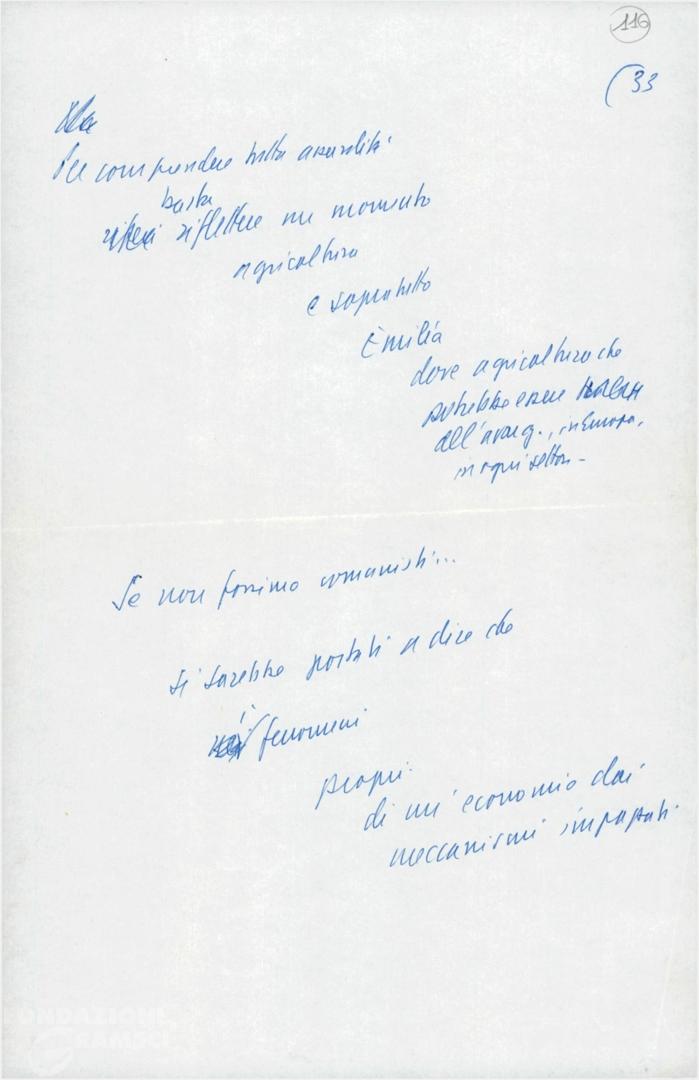 116
(33
Per comprendere tutta assurdità
basta
riflettere un momento
agricoltura
e sopratutto
Emilia
dove agricoltura che
potrebbe essere
all'avang., in Europa,
in ogni settor.-
Se non fossimo comunisti...
si sarebbe portati a dire che
i
fenomeni
propri
di un'economia dai
meccanismi impazziti
FONDAZIONE
GRAMSCI